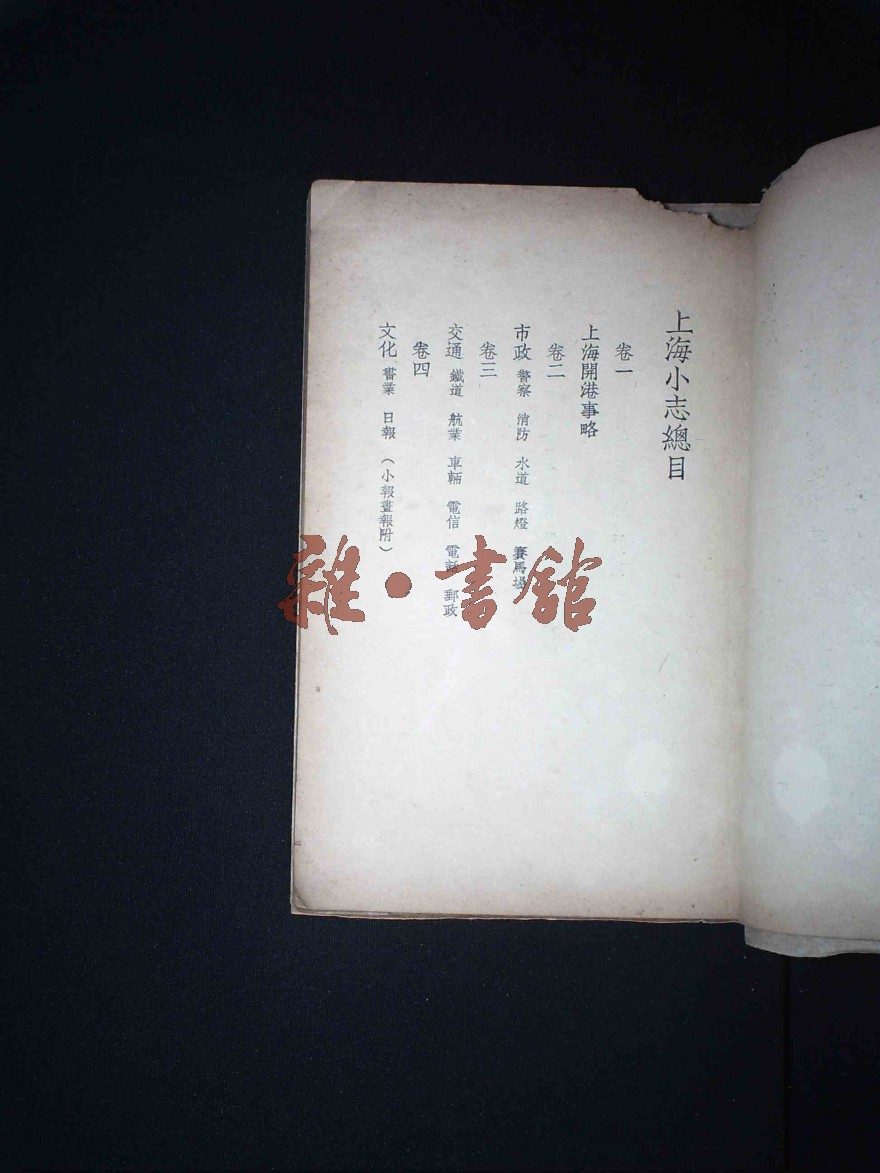 上海小志總目
卷一
上海開港事略
卷二
市政 警察 消防 水道 路燈 賽馬場
卷三
交通 鐵道 航業 車輛 電信 電話 郵政
卷四
文化 書業 日報 （小報畫報附）
雜·書館